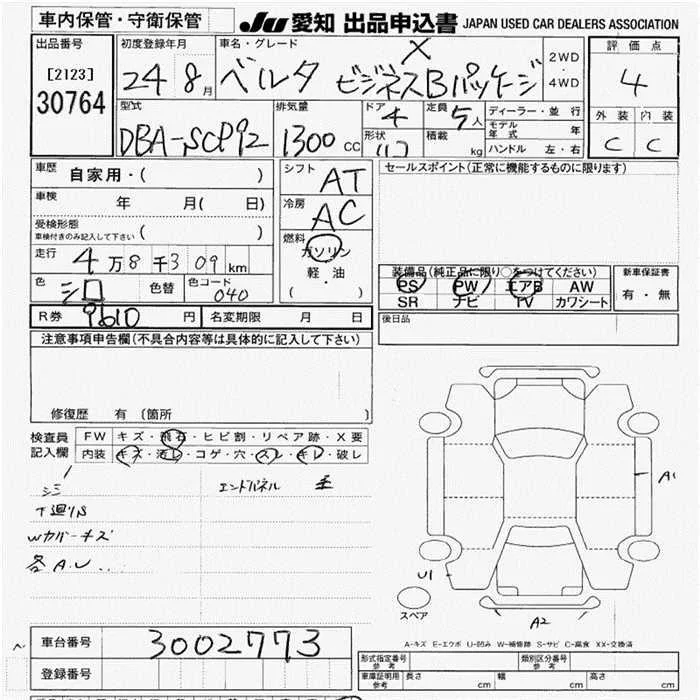 車内保管・守衛保管
JU 愛知 出品申込書 JAPAN USED CAR DEALERS ASSOCIATION
出品番号
[2123]
30764
初度登録年月
24 8月
車名・グレード
X
ベルタ ビジネスBパッケージ
2WD
4WD
評価点
4
外装 内装
C C
型式
DBA-SCP92
排気量
1300 CC
ドア 4
形状
定員 5人
積載 kg
ディーラー・並行
モデル年式 年
ハンドル 左・右
車歴 自家用・( )
車検 年 月( 日)
受検形態
車検付きのみ記入して下さい ( )
走行 4万8千309km
色 シロ 色替 色コード 040
シフト AT
冷房 AC
燃料
ガソリン
軽・油
( ・ )
セールスポイント(正常に機能するものに限ります)
装備品(純正品に限り○をつけてください)
PS PW エアB AW
SR ナビ TV カワシート
新車保証書
有・無
R券 9610円 名変期限 月 日
後日品
注意事項申告欄(不具合内容等は具体的に記入して下さい)
修復歴 有 〔箇所 〕
検査員
記入欄
FW キズ・飛石・ヒビ割・リペア跡・X要
内装 キズ・汚レ・コゲ・穴・スレ・キレ・破レ
シミ
エンドパネル
下廻りS
Wカバーキズ
各A.U...
A1
U1
スペア
A2
A-キズ E-エクボ U-凹み W-補修跡 S-サビ C-腐食 XX-交換済
車台番号 3002773
登録番号
形式指定番号 参考
類別区分番号 参考
車庫証明用 参考 長さ cm 幅 cm 高さ cm